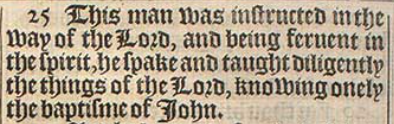 25 This man was instructed in the
way of the Lord, and being feruent in
the spirit, he spake and taught diligently
the things of the Lord, knowing onely
the baptisme of John.